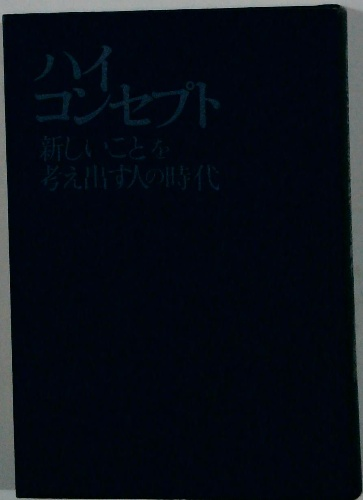 ハイ
コンセプト
新しいことを
考え出す人の時代